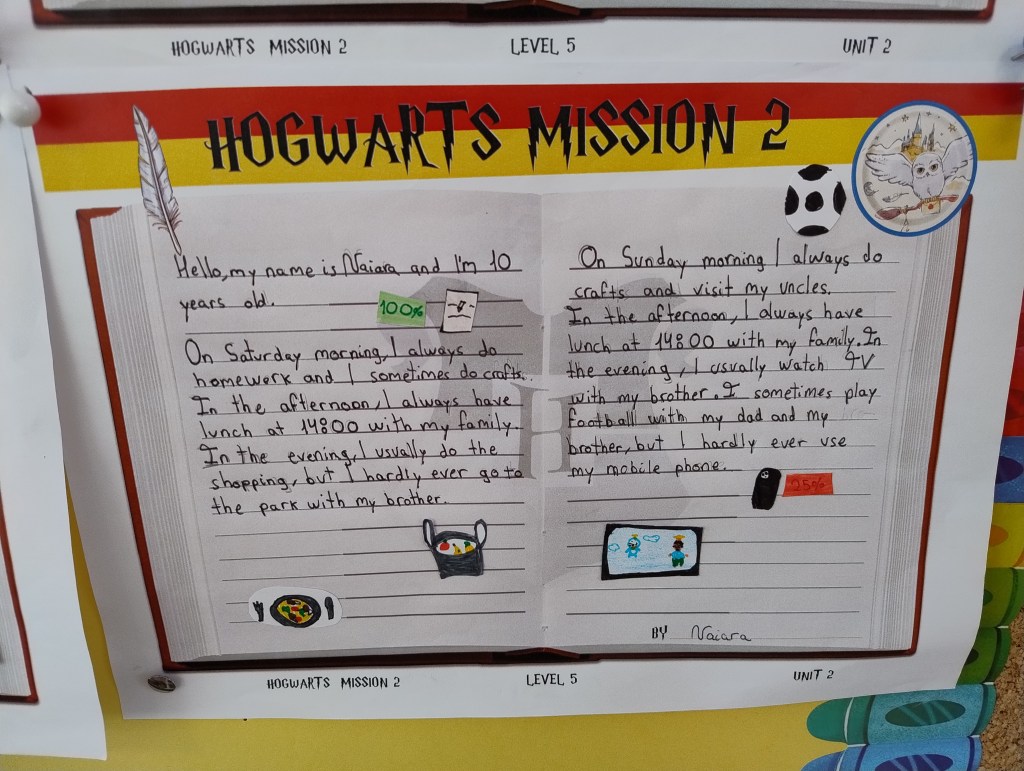 HOGWARTS MISSION 2 LEVEL 5 UNIT 2
HOGWARTS MISSION 2
Hello, my name is Naiara and I'm 10
years old.
100%
On Saturday morning, I always do
homework and I sometimes do crafts.
In the afternoon, I always have
lunch at 14:00 with my family.
In the evening, I usually do the
shopping, but I hardly ever go to
the park with my brother.
On Sunday morning I always do
crafts and visit my uncles.
In the afternoon, I always have
lunch at 14:00 with my family. In
the evening, I usually watch TV
with my brother. I sometimes play
football with my dad and my
brother, but I hardly ever use
my mobile phone.
25%
BY Naiara
HOGWARTS MISSION 2 LEVEL 5 UNIT 2